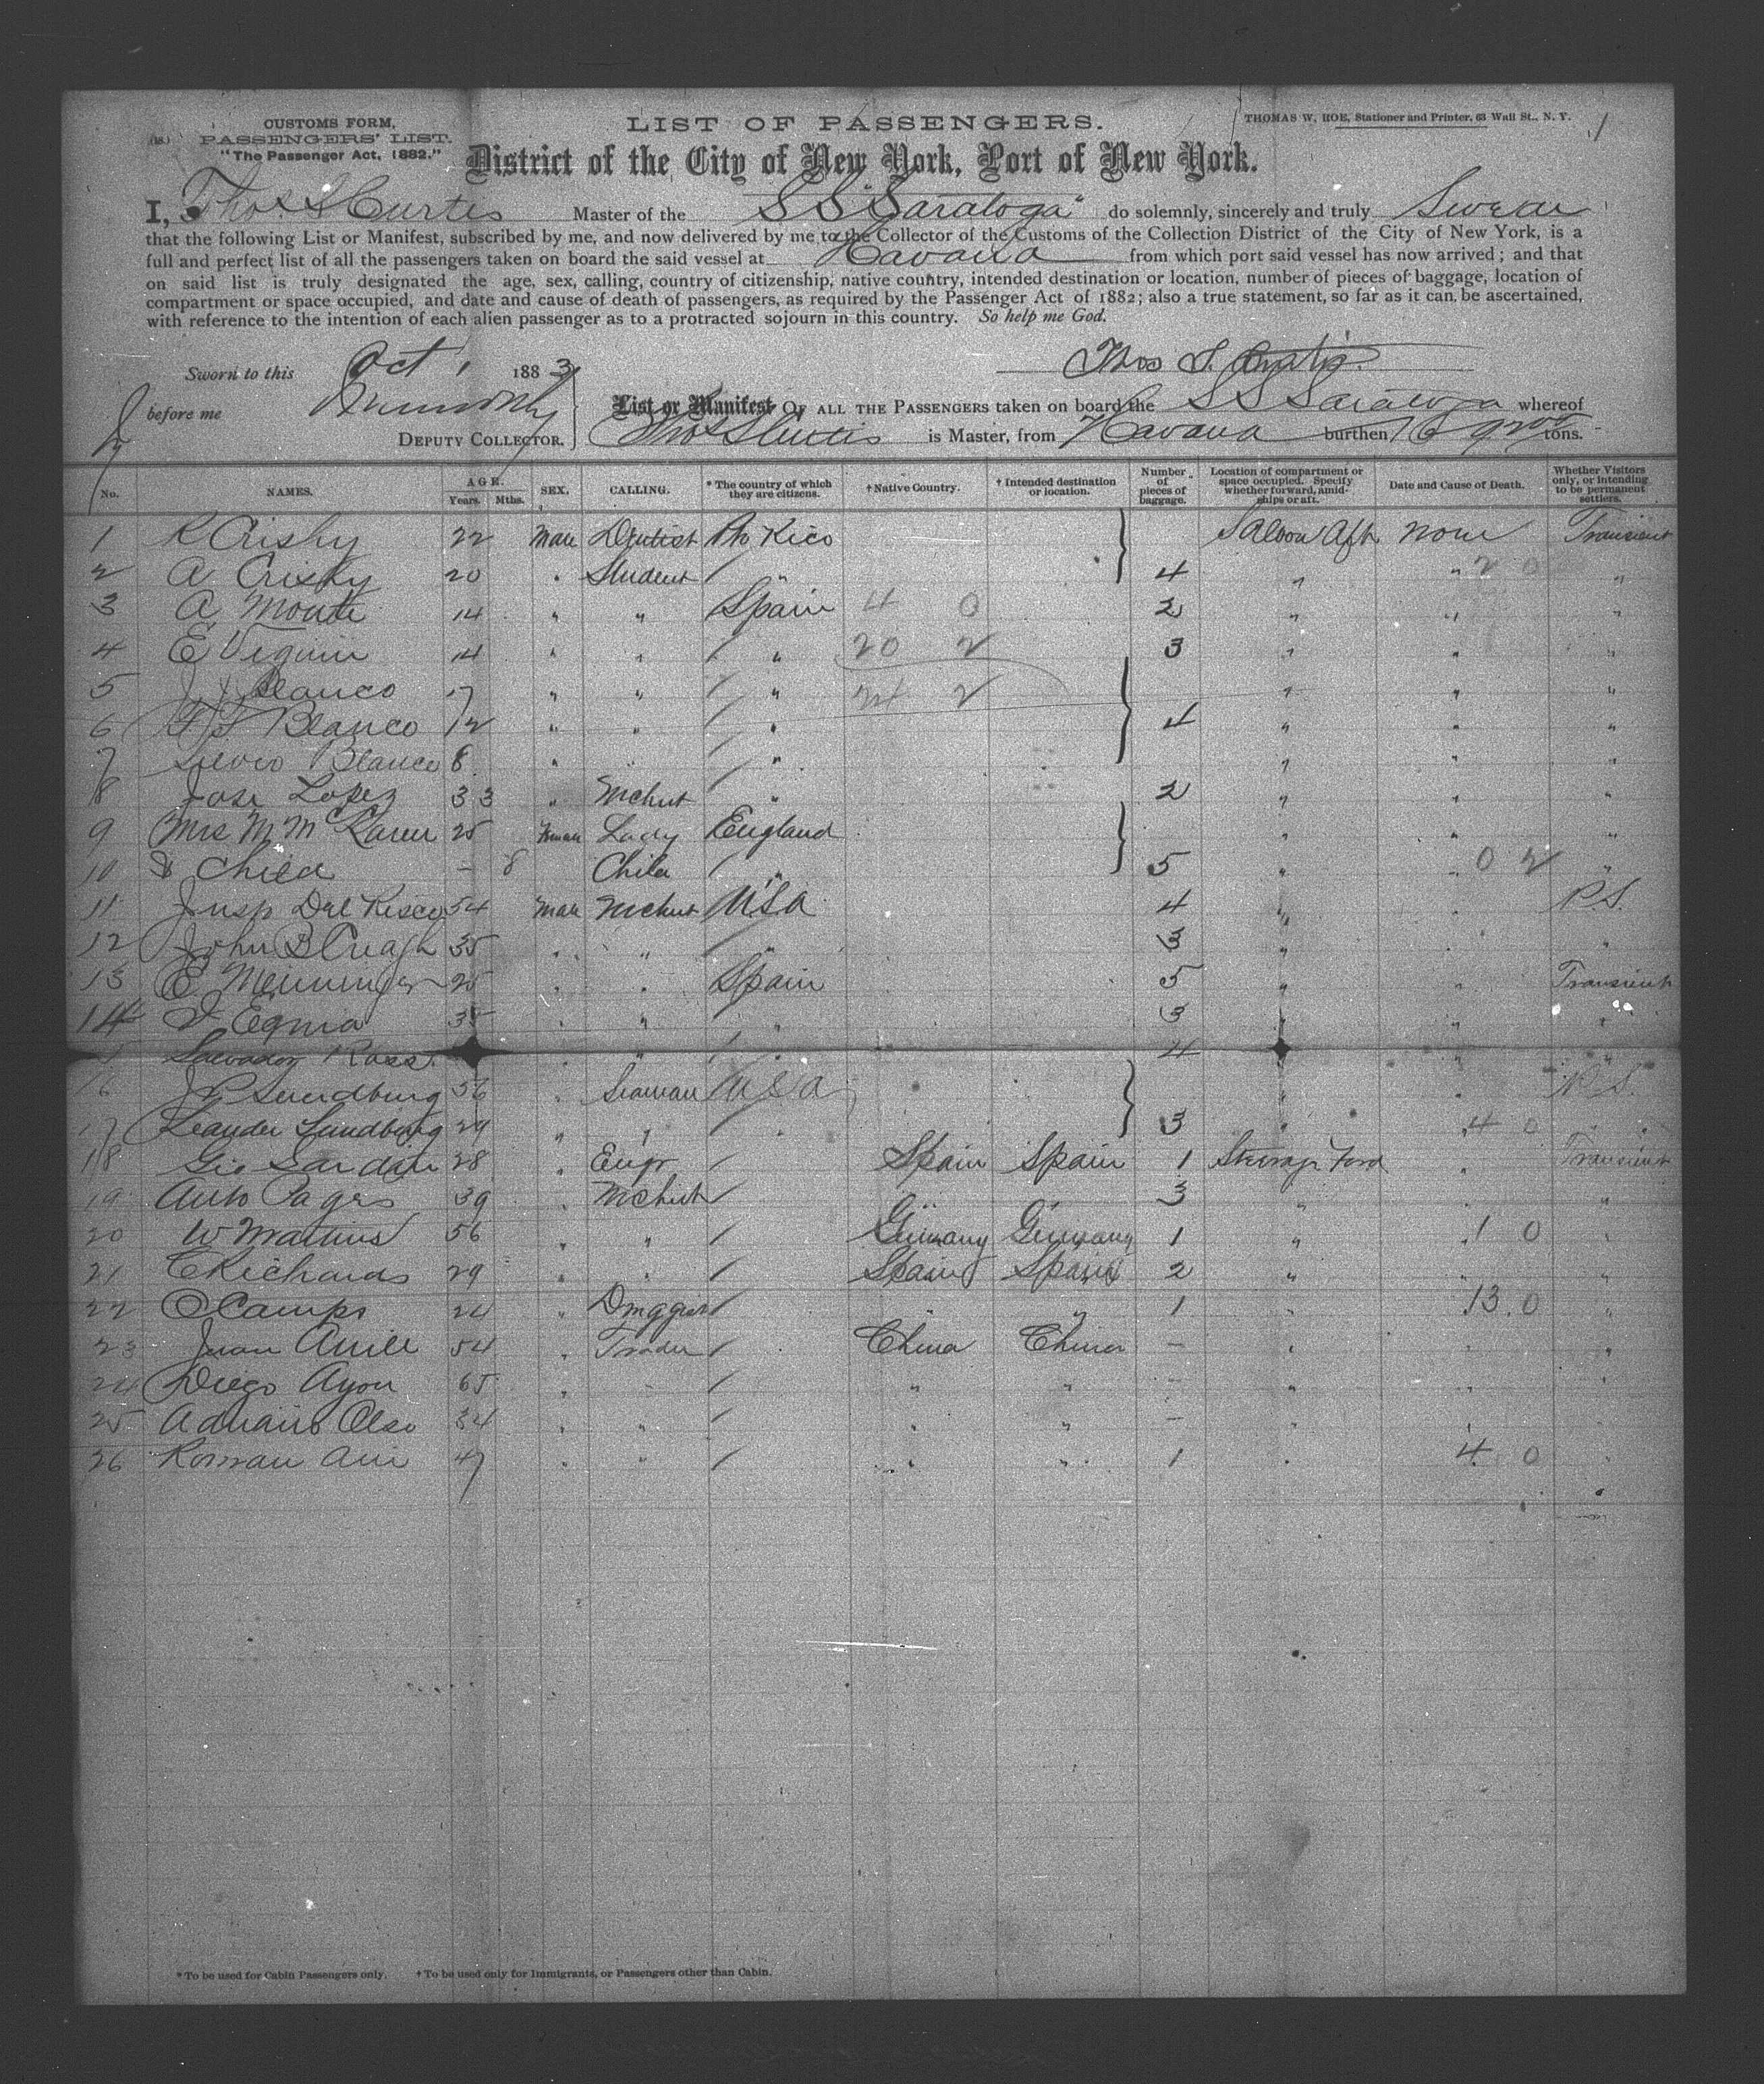 (18.)
CUSTOMS FORM,
PASSENGERS' LIST.
"The Passenger Act, 1882."
LIST OF PASSENGERS.
THOMAS W. ROE, Stationer and Printer, 63 Wall St., N. Y.
1
District of the City of New York, Port of New York.
I, Thos. S Curtis Master of the SS "Saratoga" do solemnly, sincerely and truly Swear
that the following List or Manifest, subscribed by me, and now delivered by me to the Collector of the Customs of the Collection District of the City of New York, is a
full and perfect list of all the passengers taken on board the said vessel at Havana from which port said vessel has now arrived; and that
on said list is truly designated the age, sex, calling, country of citizenship, native country, intended destination or location, number of pieces of baggage, location of
compartment or space occupied, and date and cause of death of passengers, as required by the Passenger Act of 1882; also a true statement, so far as it can be ascertained,
with reference to the intention of each alien passenger as to a protracted sojourn in this country. So help me God.
Sworn to this Oct 1 1883
Thos S. Curtis
before me
DEPUTY COLLECTOR.
List or Manifest OF ALL THE PASSENGERS taken on board the SS Saratoga whereof
Thos S Curtis is Master, from Havana burthen tons.
No. NAMES. AGE. Years. Mths. SEX. CALLING. * The country of which they are citizens. † Native Country. † Intended destination or location. Number of pieces of baggage. Location of compartment or space occupied. Specify whether forward, amidships or aft. Date and Cause of Death. Whether Visitors only, or intending to be permanent settlers.
1 R Crisby 22 Male Dentist Po Rico Saloon Aft none Transient
2 A 20 " Student " 4 " " 2 0 "
3 A Monte 14 " " Spain 4 0 2 " " "
4 E 14 " " " 20 2 3 " " "
5 J Blanco 17 " " " 24 2 " " "
6 Blanco 12 " " " 4 " " "
7 Silvio Blanco 8 " " " " " "
8 Jose Lopez 33 " Mchnt " 2 " " "
9 Mrs M Mc 25 Female Lady England " " "
10 & Child - 8 Child " 5 " " 0 2 "
11 Del Risco 54 Male Mchnt USA 4 " " P.S.
12 John B Creagh 35 " " " 3 " " "
13 E 25 " " Spain 5 " " Transient
14 Eguia 35 " " " 3 " " "
Salvador Ross " " 4 " " "
16 J P Lundburg 56 " Seaman USA " " P.S.
17 Leander Lundburg 29 " " " 3 " " 4 0 "
18 Geo 28 " Engr Spain Spain 1 Steerage Ford " Transient
19 Anto Pages 39 " Mchnt " " 3 " " "
20 W Martins 56 " " Germany Germany 1 " " 1 0 "
21 C Richards 29 " " Spain Spain 2 " " "
22 O Camps 24 " Druggist " " 1 " 13 0 "
23 Juan 54 " Trader China China - " " "
24 Diego Ayon 65 " " " " - " " "
25 34 " " " " - " " "
26 Roman 47 " " " " 1 " 4 0 "
* To be used for Cabin Passengers only. † To be used only for Immigrants, or Passengers other than Cabin.